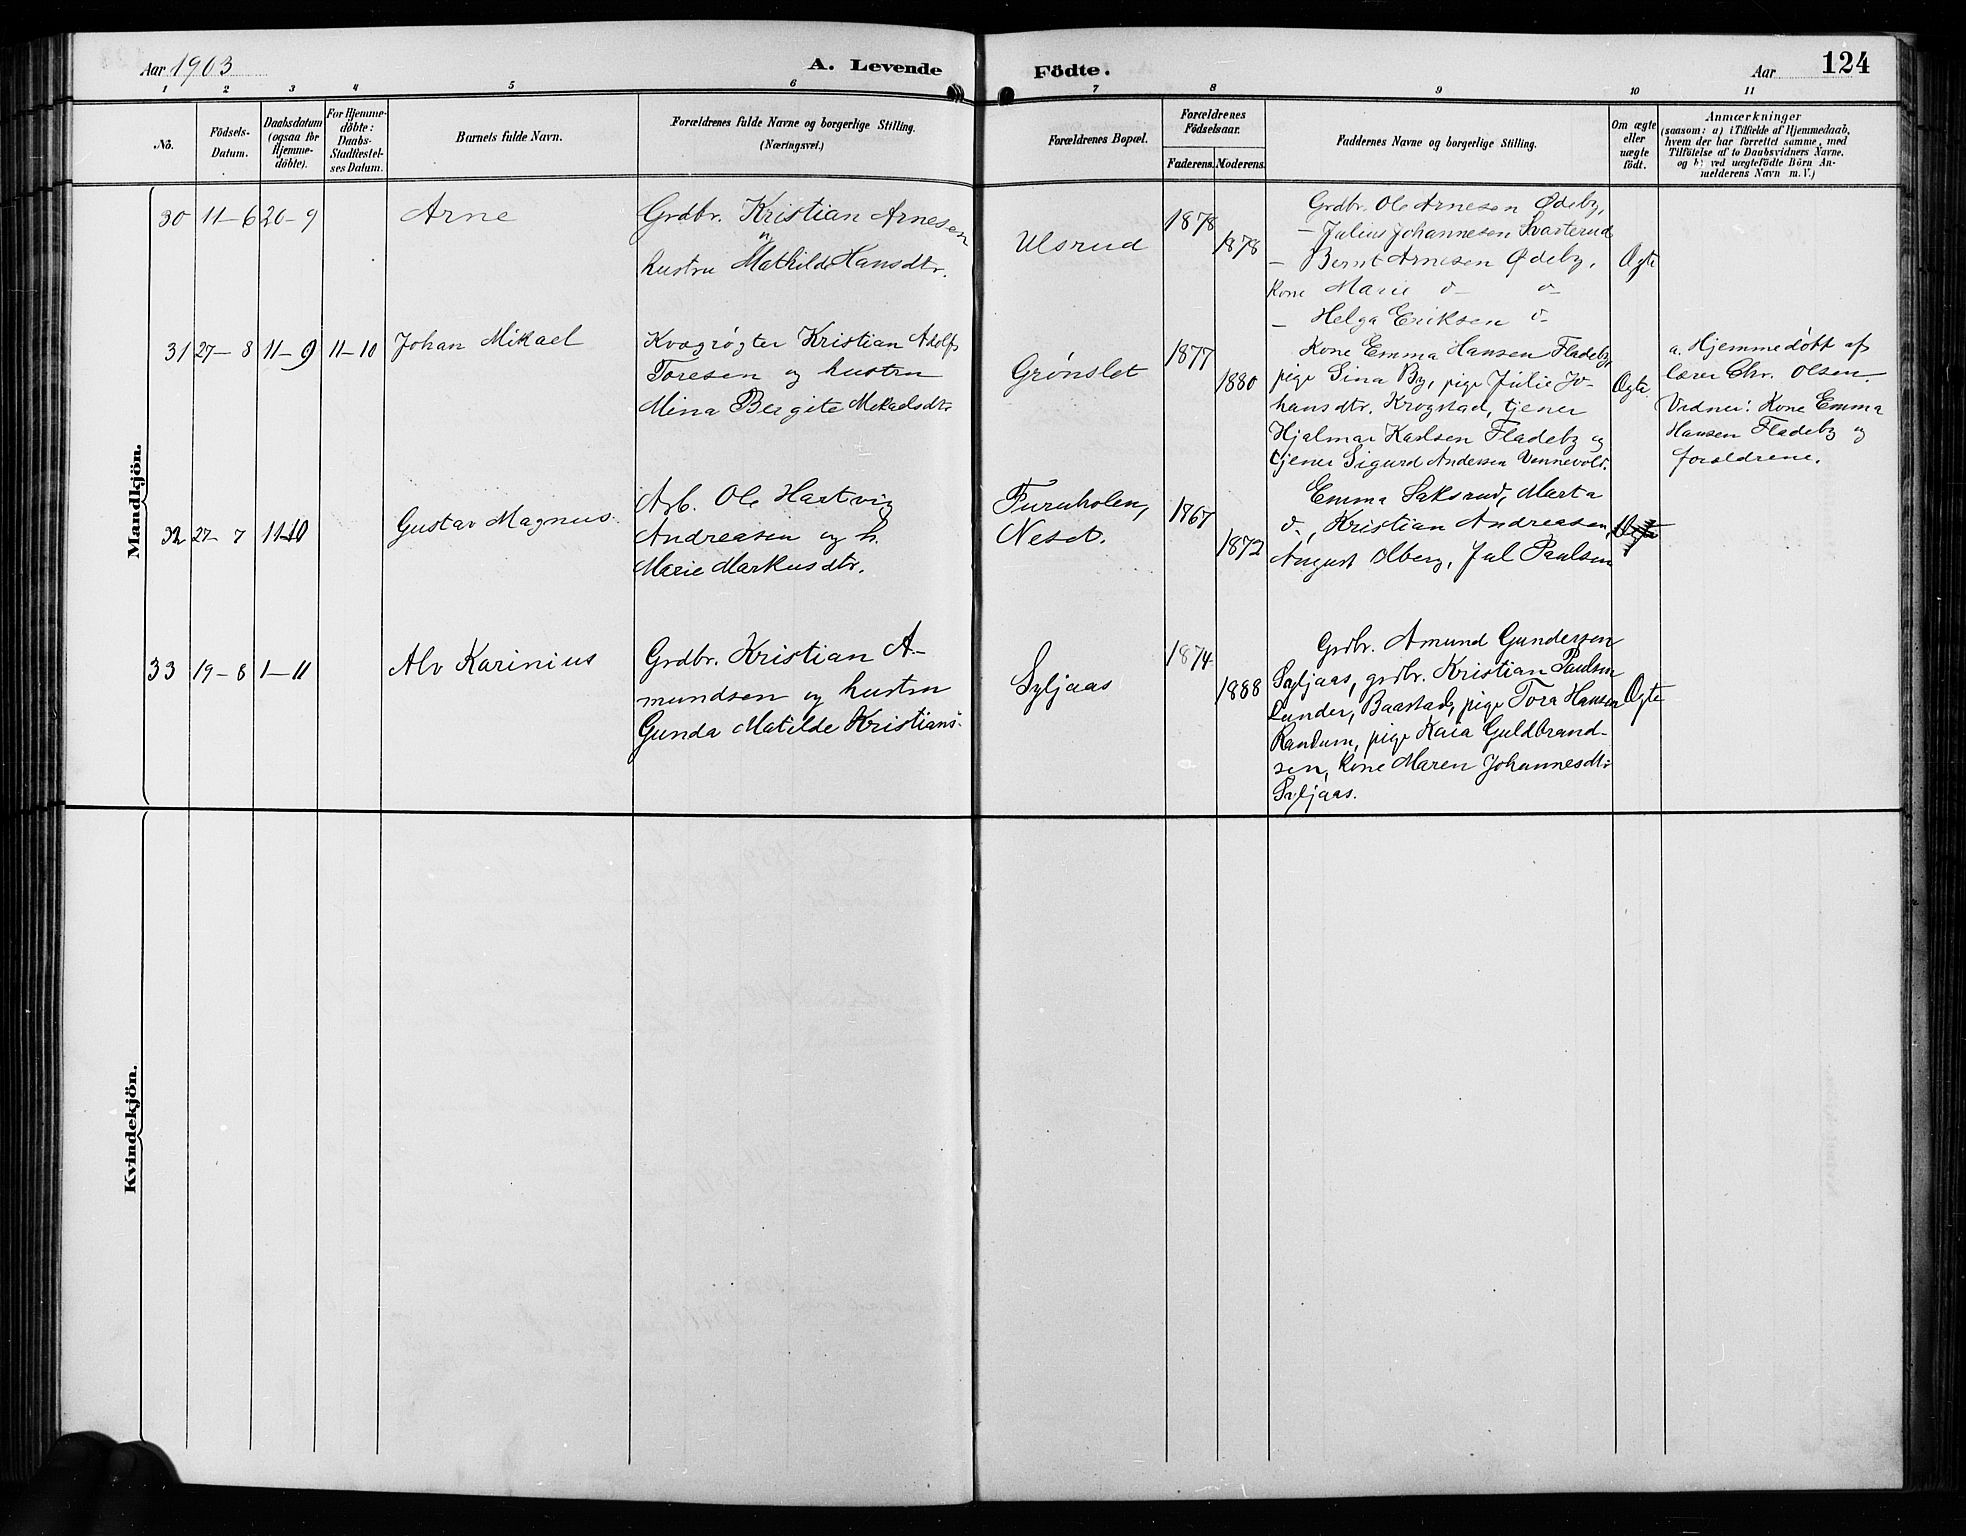 Aar 1903
A. Levende Födte.
Aar 124
1 2 3 4 5 6 7 8 9 10 11
No.
Födsels-
Datum.
Daabsdatum
(ogsaa for
Hjemme-
döbte).
For Hjemme-
döbte:
Daabs-
Stadfæstel-
ses Datum.
Barnets fulde Navn.
Forældrenes fulde Navne og borgerlige Stilling.
(Næringsvei.)
Forældrenes Bopæl.
Forældrenes
Födselsaar.
Faderens. Moderens.
Faddernes Navne og borgerlige Stilling.
Om ægte
eller
uægte
födt.
Anmærkninger
(saasom: a) i Tilfælde af Hjemmedaab,
hvem der har forrettet samme, med
Tilföielse af to Daabsvidners Navne,
og b) ved uægtefödte Börn An-
melderens Navn m. V.)
Mandkjön.
30 11-6 20-9
Arne
Grdbr. Kristian Arnesen
hustru Mathilde Hansdtr.
Ulsrud
1878
1878
Grdbr. Ole Arnesen Ødeby,
- Julius Johannesen Svarterud
- Bernt Arnesen Ødeby,
Kone Marie d- d-
- Helga Eriksen d-
Ægte
31 27-8 11-9 11-10
Johan Mikael
Kvægrøgter Kristian Adolf
Toresen og hustru
Mina Bergite Mikaelsdtr.
Grønslet
1877
1880
Kone Emma Hansen Fladeby,
pige Sina By, pige Julie Jo-
hansdtr. Krogstad, tjener
Hjalmar Karlsen Fladeby og
tjener Sigurd Andersen Vennevold.
Ægte
a. Hjemmedøbt af
lærer Chr. Olsen.
Vidner: Kone Emma
Hansen Fladeby og
forældrene.
32 27-7 11-10
Gustav Magnus.
Arb. Ole Hartvig
Andreasen og h.
Marie Markusdtr.
Furuholen,
Neset.
1867
1872
Emma Saksrud, Marta
d-, Kristian Andreasen,
August Olberg, Jul Paulsen
Ægte
33 19-8 1-11
Alv Karinius
Grdbr. Kristian A-
mundsen og hustru
Gunda Matilde Kristians-
Syljaas
1874
1888
Grdbr. Amund Gundersen
Syljaas, grdbr. Kristian Paulsen
Lunder, Baastad, pige Tora Hansen
Randum, pige Kaia Guldbrand-
sen, kone Maren Johannesdtr.
Syljaas.
Ægte
Kvindekjön.